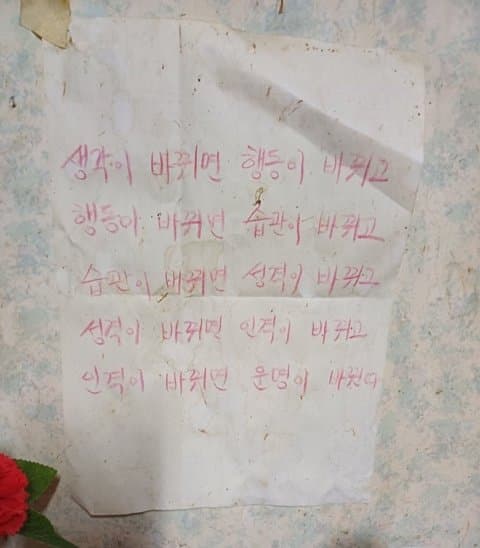 생각이 바뀌면 행동이 바뀌고
행동이 바뀌면 습관이 바뀌고
습관이 바뀌면 성격이 바뀌고
성격이 바뀌면 인격이 바뀌고
인격이 바뀌면 운명이 바뀐다